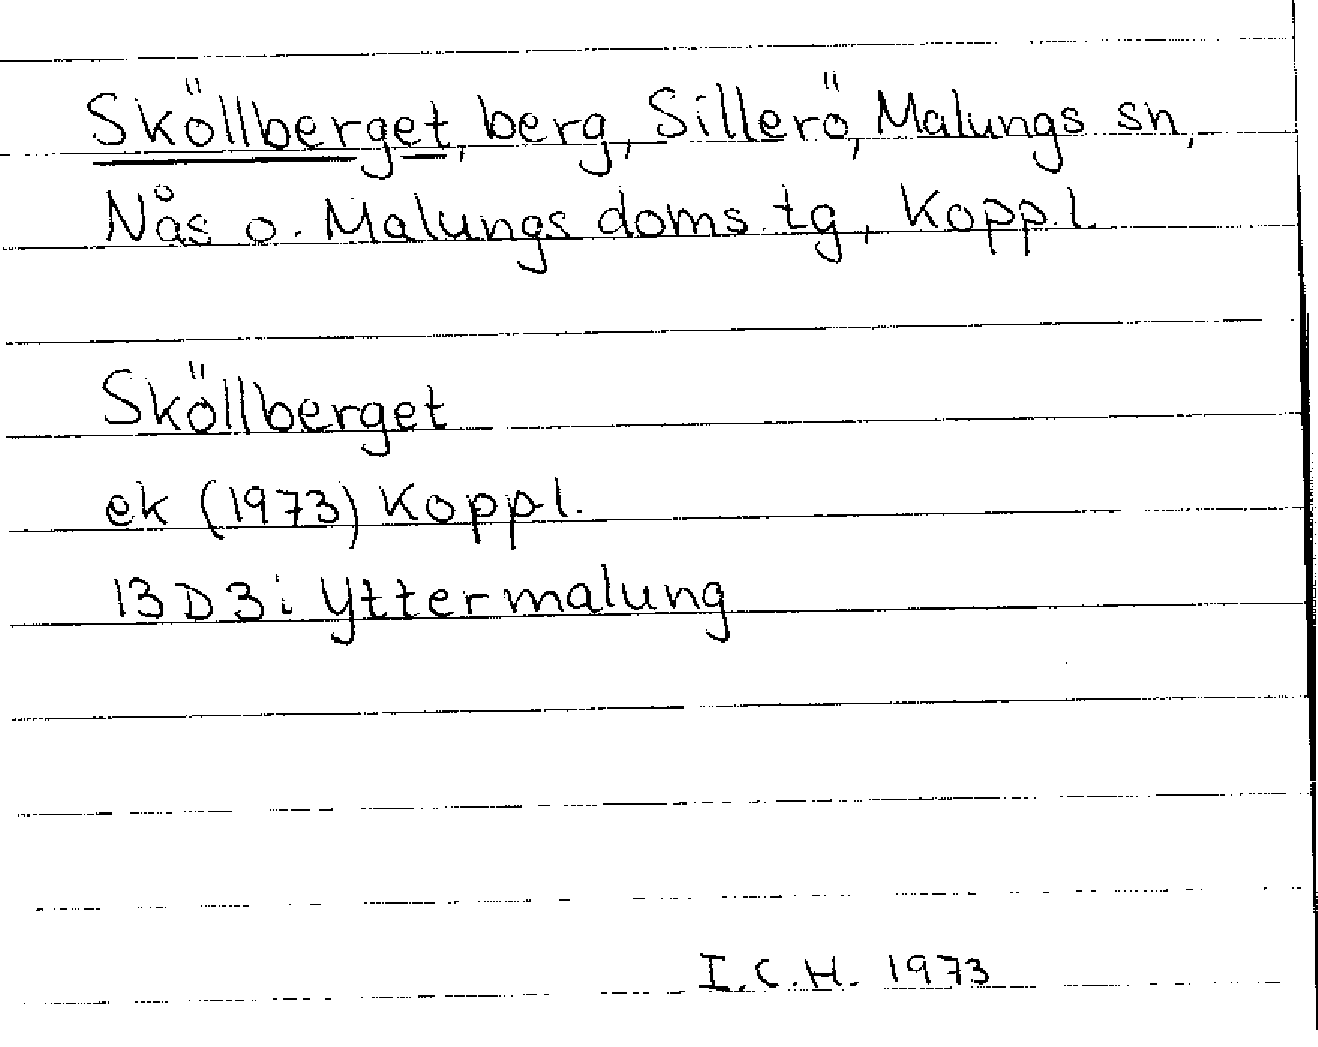 Sköllberget, berg, Sillerö, Malungs sn,
Nås o. Malungs doms. tg, Kopp.l.
Sköllberget
ek (1973) Kopp.l.
13D3i Yttermalung
I.C.H. 1973